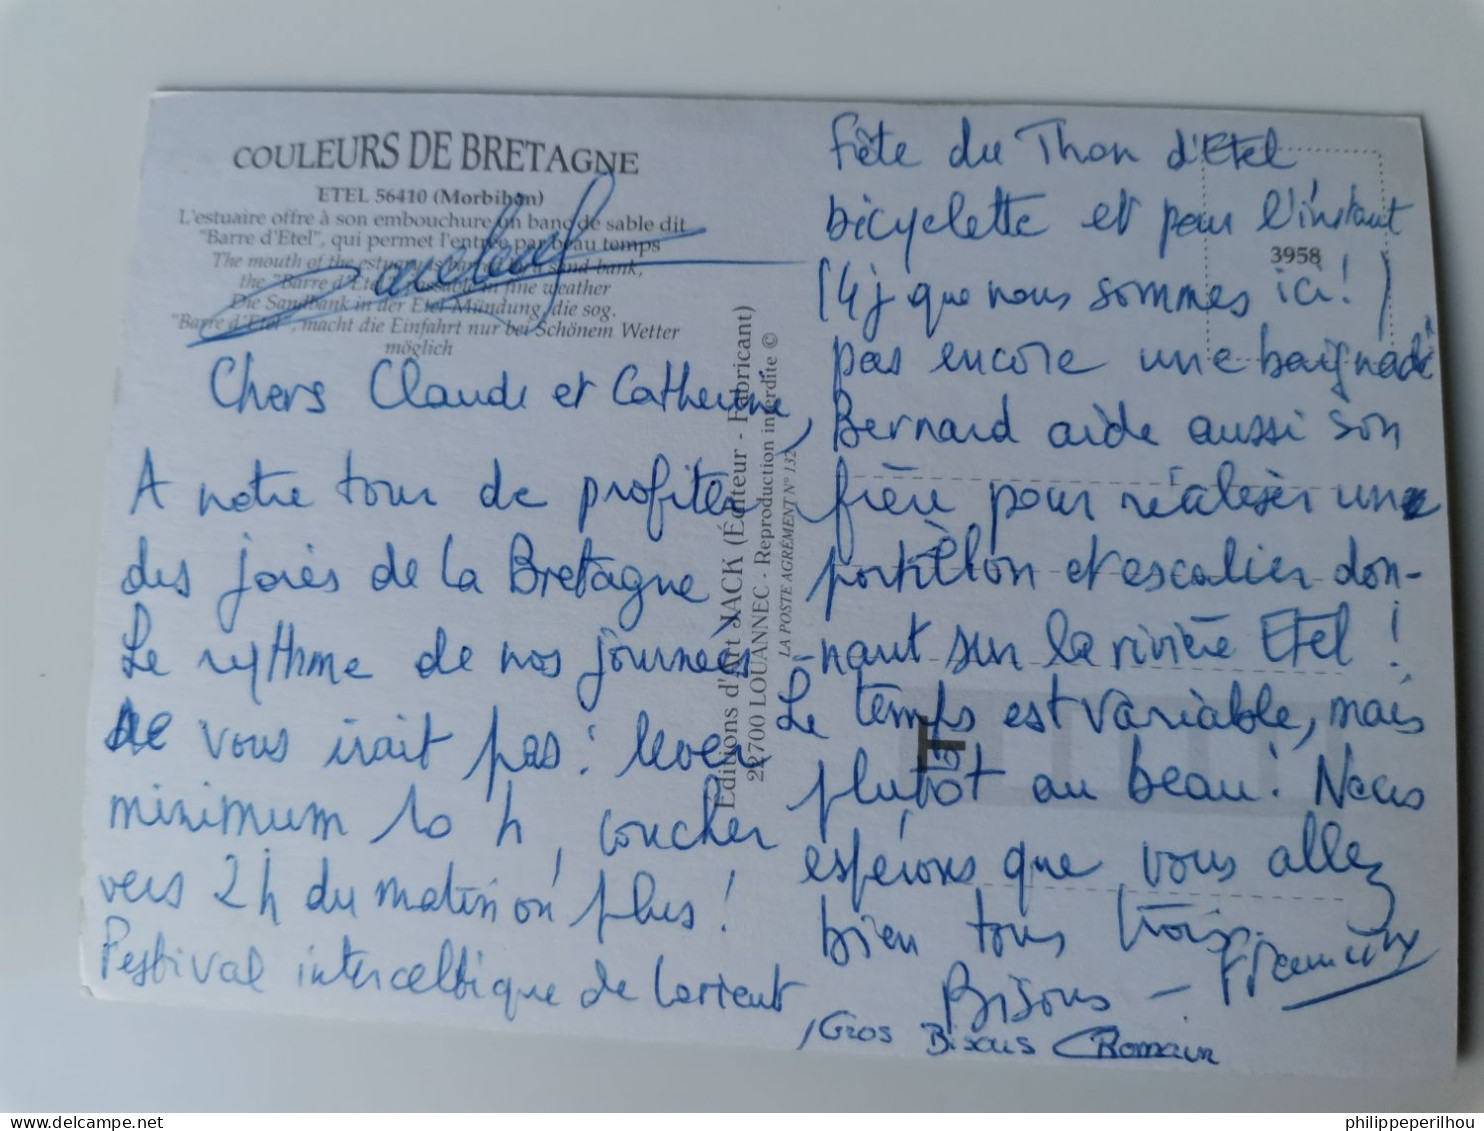 COULEURS DE BRETAGNE
ETEL 56410 (Morbihan)
L'estuaire offre à son embouchure un banc de sable dit
"Barre d'Etel", qui permet l'entrée par beau temps
The mouth of the estuary is barred by a sand-bank,
the "Barre d'Etel", passable in fine weather
Die Sandbank in der Etel Mündung, die sog.
"Barre d'Etel", macht die Einfahrt nur bei Schönem Wetter
möglich
Chers Claude et Catherine,
A notre tour de profiter
des joies de la Bretagne
Le rythme de nos journées
ne vous irait pas : lever
minimum 10 h, coucher
vers 2h du matin ou plus !
Festival interceltique de Lorient,
Editions d'Art JACK (Éditeur - Fabricant)
22700 LOUANNEC - Reproduction interdite ©
LA POSTE AGRÉMENT N° 132
3958
Fête du Thon d'Etel
bicyclette et pour l'instant
(4 j que nous sommes ici ! )
pas encore une baignade
Bernard aide aussi son
frère pour réaliser un
portillon et escalier don-
-nant sur la rivière Etel !
Le temps est variable, mais
plutôt au beau ! Nous
espérons que vous allez
bien tous trois.
Bisous -
Gros Bisous Romain
philippeperilhou